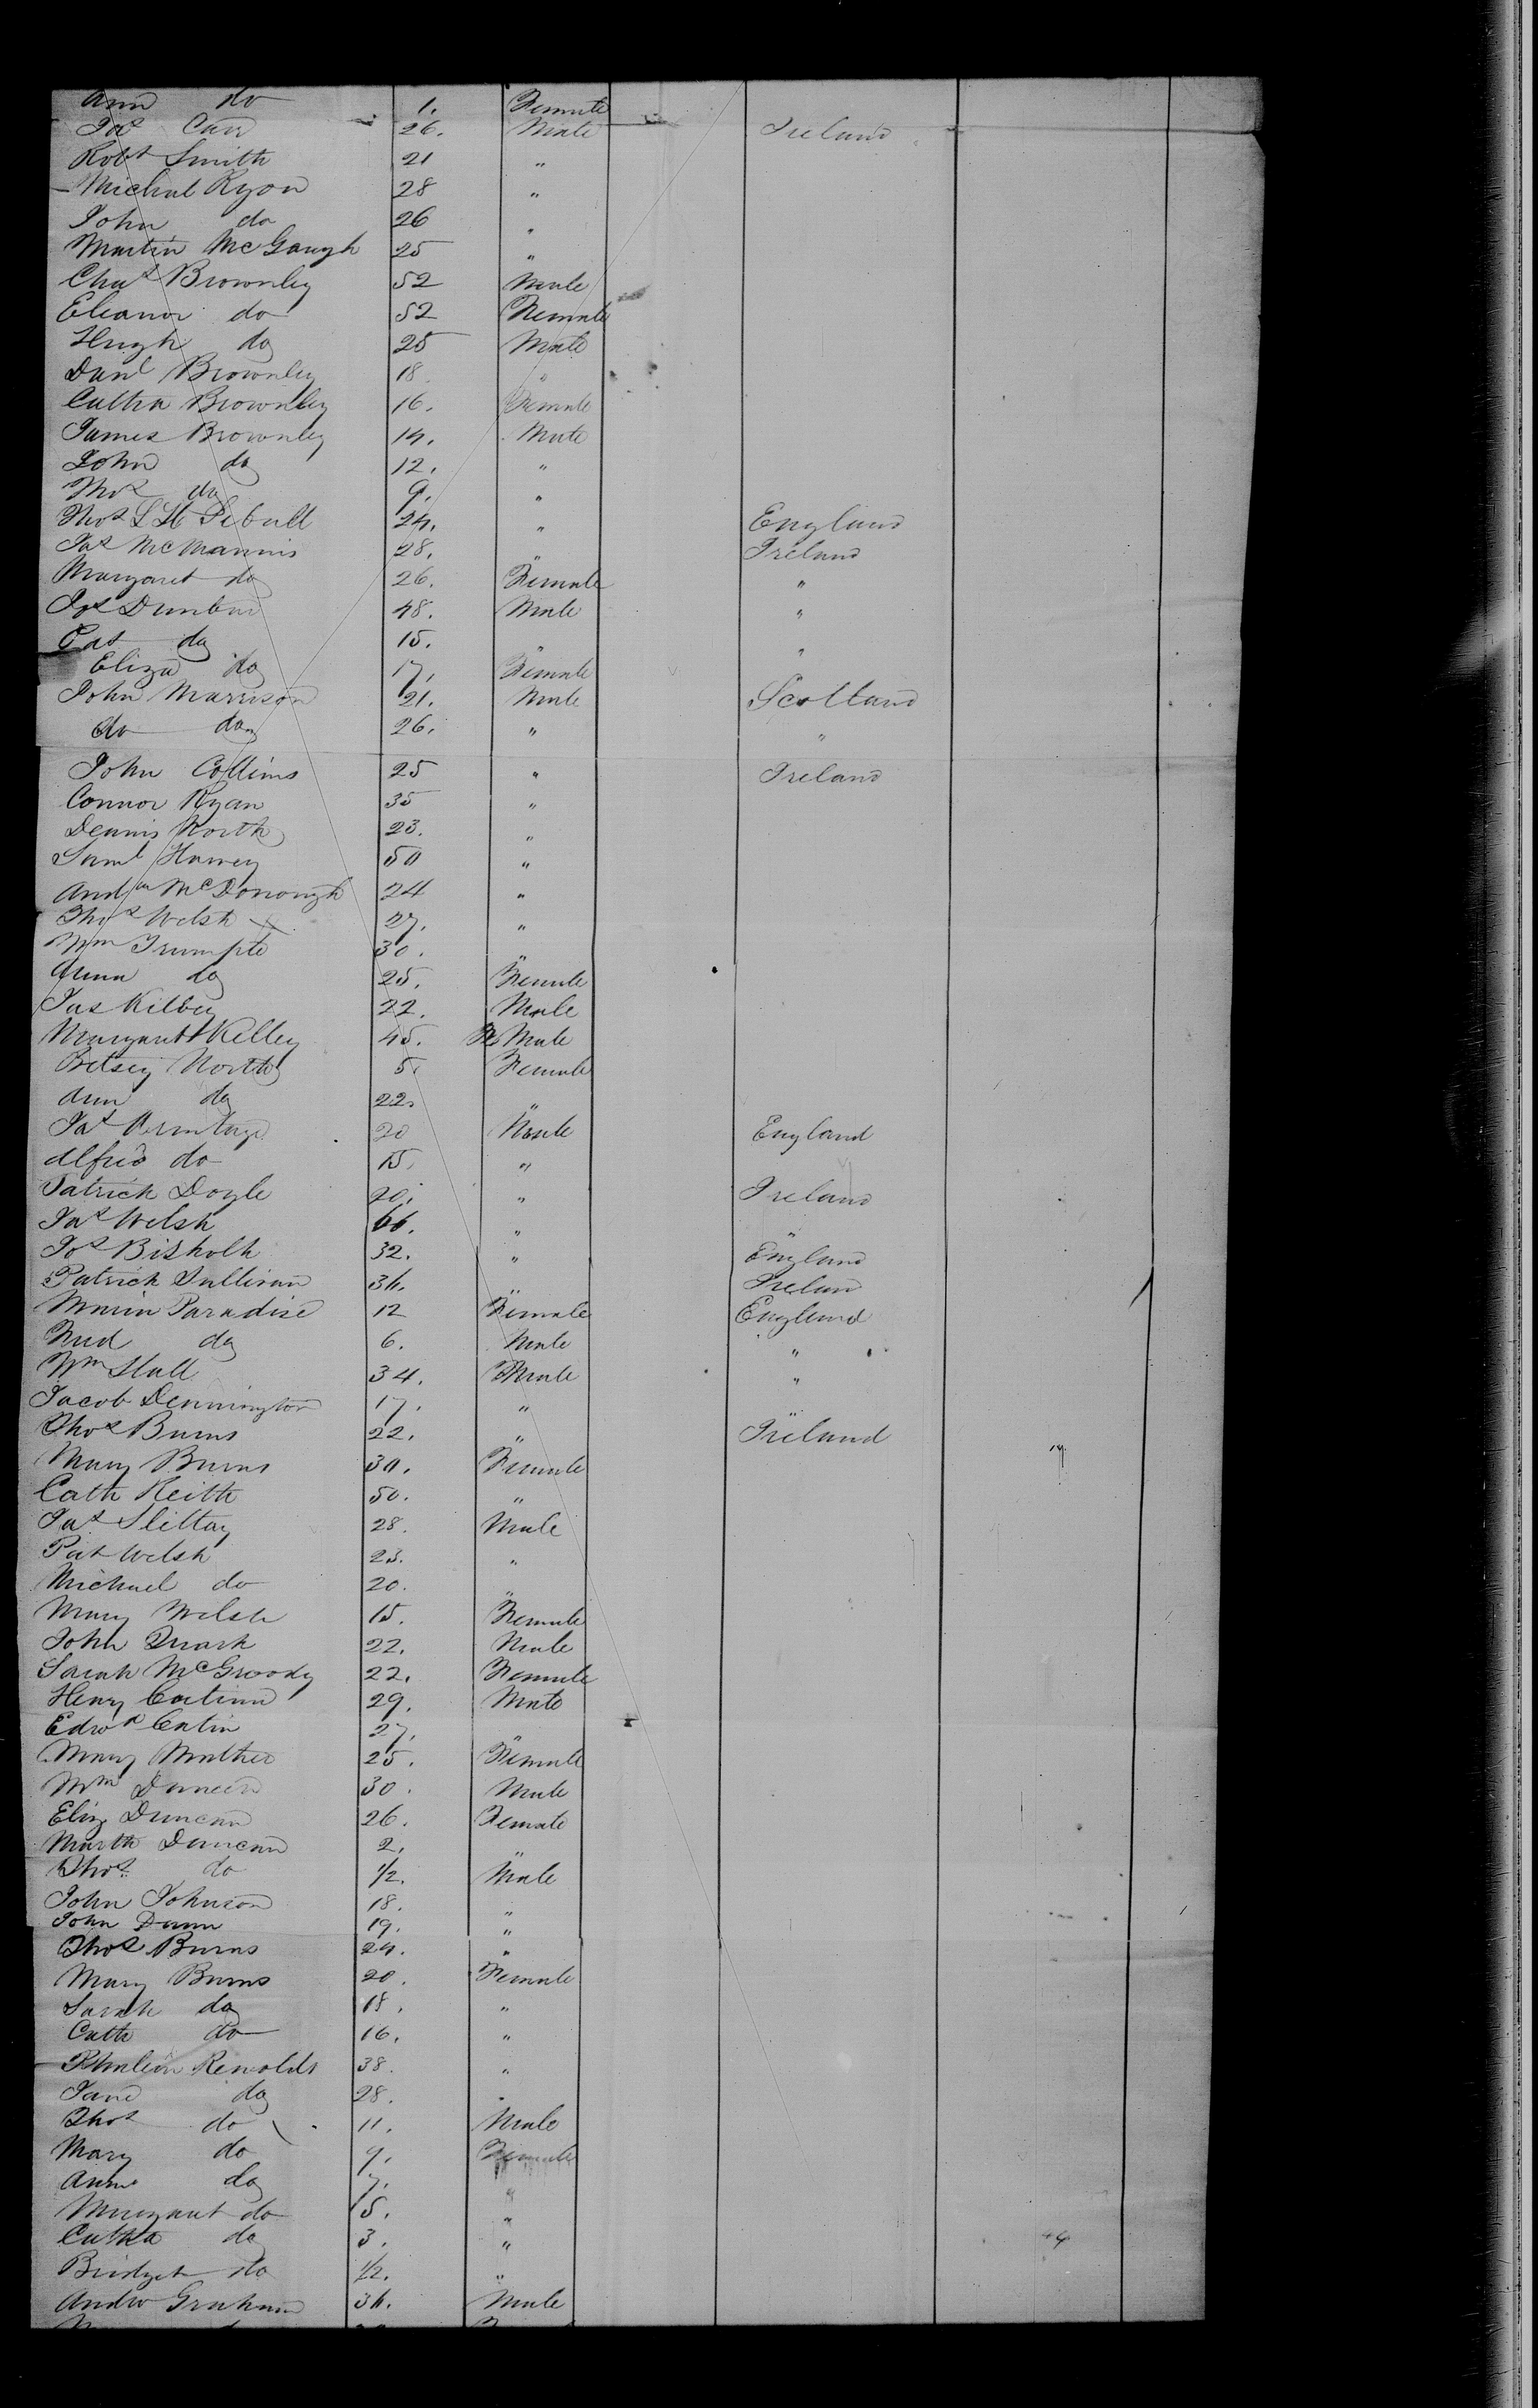 Ann do 1. Female
Jas Carr 26. Male Ireland
Robt Smith 21 "
Michal Ryon 28 "
John do 26 "
Martin McGaugh 25 "
Chas Brownley 52 Male
Eleanor do 52 Female
Hugh do 25 Male
Danl Brownley 18 "
Cathn Brownley 16. Female
James Brownley 14. Male
John do 12. "
Thos do 9. "
Thos 24. " England
Jas McMannis 28. " Ireland
Margaret do 26. Female "
Jas Dunbar 48. Male "
Pat do 15. " "
Eliza do 17. Female
John Marrison 21. Male Scotland
do do 26. " "
John Collins 25 " Ireland
Connor Ryan 35 "
Dennis North 23. "
Saml Harvey 50 "
Andw McDonough 24 "
Thos Welsh 27. "
Wm Trumpte 30. "
Anna do 25. Female
Jas Kilbey 22. Male
Margaret Kelley 45. Fe Male
Betsey North 5. Female
Ann do 22. "
Jas Armitage 20 Male England
Alfred do 15. "
Patrick Doyle 20. " Ireland
Jas Welsh 66. " "
Jos Bisholh 32. " England
Patrick Sullivan 36. " Irelan
Maria Paradise 12 Female England
Fred do 6. Male "
Wm Hall 34. Male "
Jacob Dennington 17. " "
Thos Burns 22. " Ireland
Mary Burns 30. Female
Cath Keith 50. "
Jas Slittay 28. Male
Pat Welsh 23. "
Michael do 20. "
Mary Welsh 15. Female
John Quark 22. Male
Sarah McGroody 22. Female
Henry Catinn 29. Male
Edwd Catin 27. "
Mary Mather 25. Female
Wm Duncan 30. Male
Eliz Duncan 26. Female
Marth Duncan 2. "
Thos. do 1/2. Male
John Johnson 18. "
John Dunn 19. "
Thos Burns 24. "
Mary Burns 20. Female
Sarah do 18. "
Cath do 16. "
Renolds 38. "
Jane do 28. "
Thos do 11. Male
Mary do 9. Female
Ann do 7. "
Margaret do 5. "
Catha do 3. "
Bridget do 1/2. "
Andw Graham 36. Male